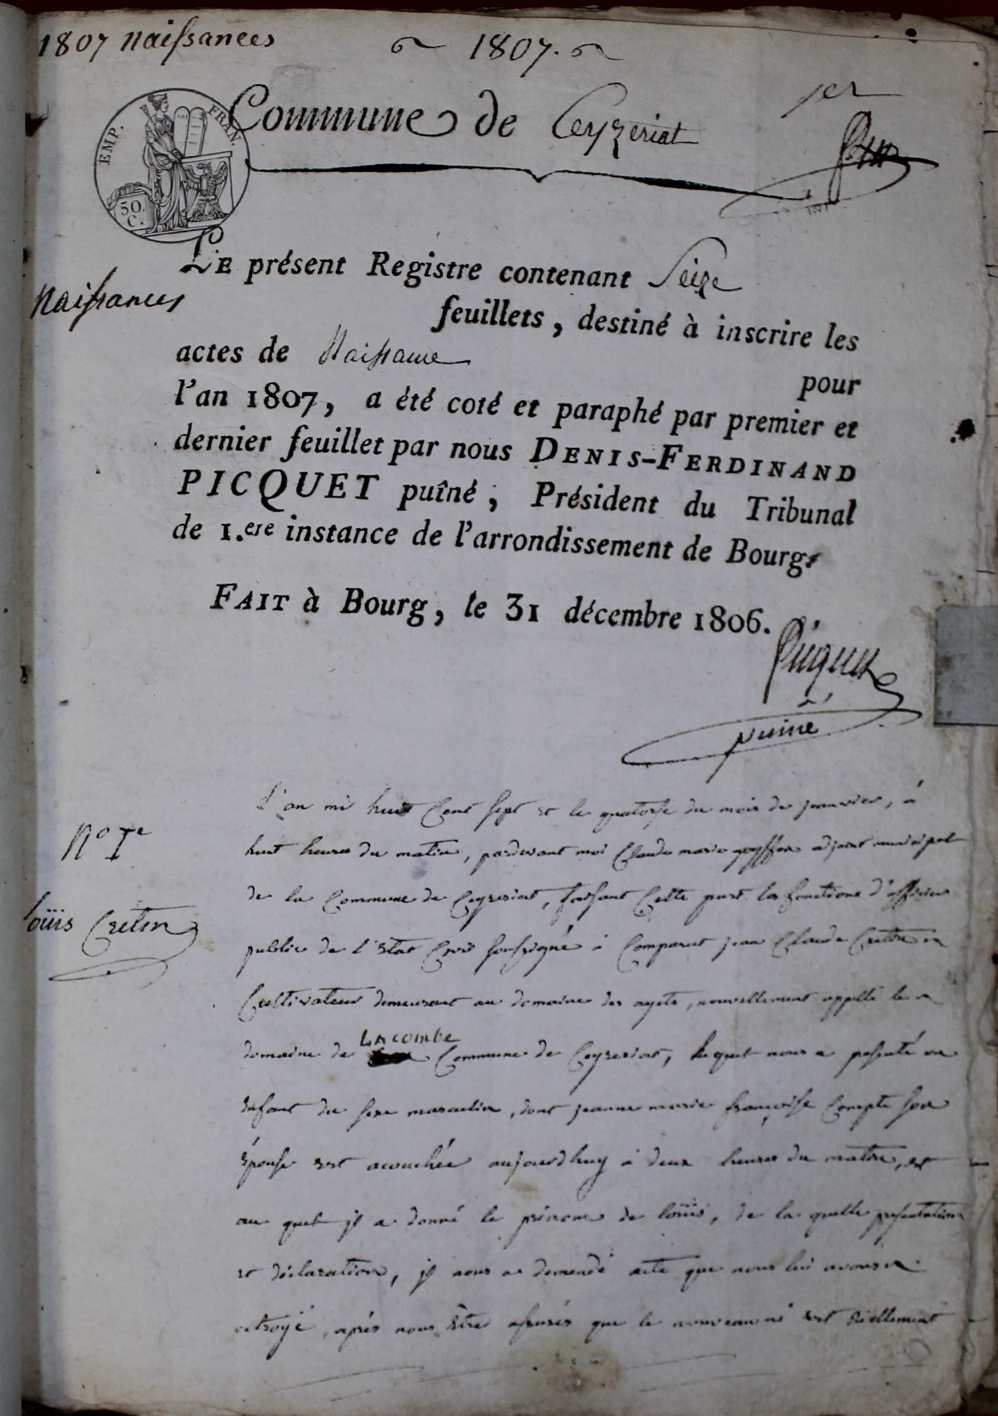 1807 Naissances
1807.
Commune de Ceyzeriat
1er
EMP. FRAN.
50. C.
LE présent Registre contenant Seize
Naissances
feuillets, destiné à inscrire les
actes de Naissance
pour
l'an 1807, a été coté et paraphé par premier et
dernier feuillet par nous DENIS-FERDINAND
PICQUET puîné, Président du Tribunal
de 1.ere instance de l'arrondissement de Bourg.
FAIT à Bourg, le 31 décembre 1806.
Picquet
puiné
L'an mil huit Cent Sept et le quatorse du mois de janvier, à
N° 1er
huit heures du matin, pardevant moi Claude marie adjoint municipal
de la Commune de Ceyzeriat, faisant Cette part les fonctions d'officier
loüis Cretin
public de l'Etat Civil soussigné à Comparut jean Claude Cretin
Cultivateur demeurant au domaine des ayets, nouvellement appellé le
domaine de LACombe Commune de Ceyzeriat, lequel nous a présenté un
Enfant du sexe masculin, dont jeanne marie françoise Compte son
Épouse est acouchée aujourdhuy à deux heures du matin, et
au quel il a donné le prénom de loüis, de la quelle présentation
et déclaration, il nous a demendé acte que nous lui avons
octroyé, après nous être assurés que le nouveau né est réellement